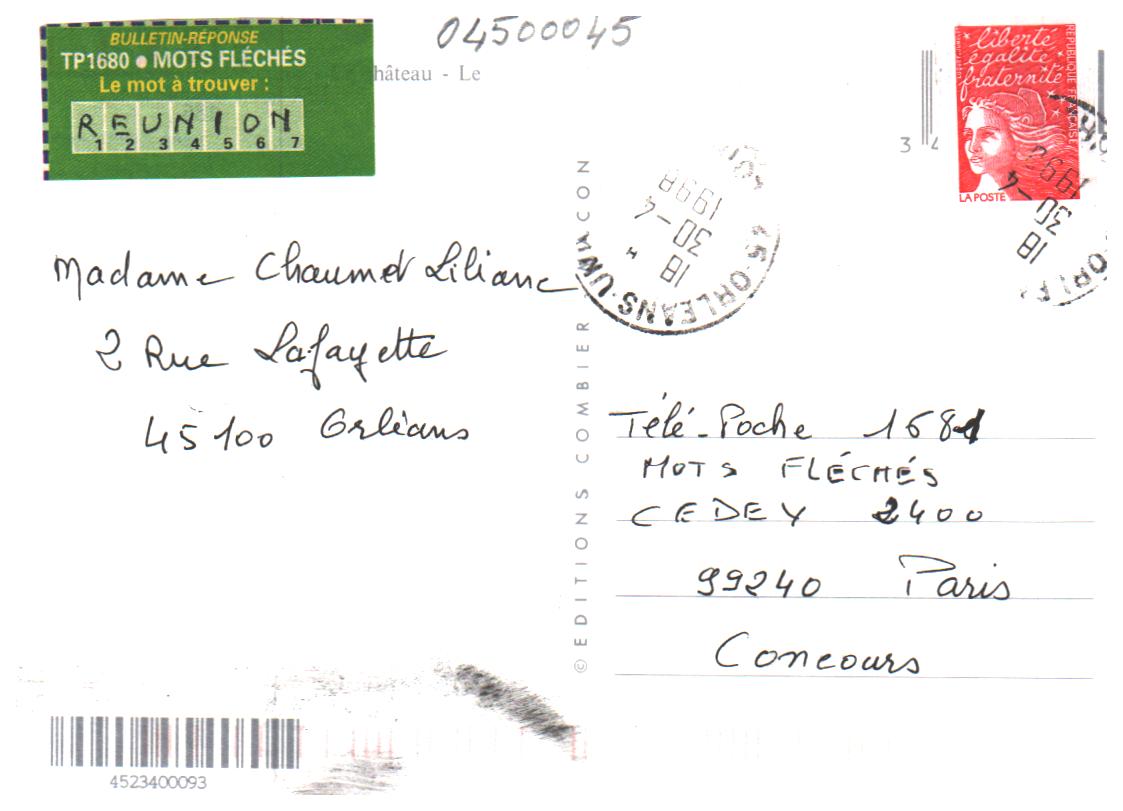 BULLETIN-RÉPONSE
TP1680 ● MOTS FLÉCHÉS
Le mot à trouver :
REUNION
1 2 3 4 5 6 7
04500045
hâteau - Le
liberté
égalité
fraternité
RÉPUBLIQUE FRANÇAISE
LA POSTE
3
45 ORLEANS
18
30-4
1998
18
30-4
1998
Madame Chaumet Liliane
2 Rue Lafayette
45100 Orléans
© EDITIONS COMBIER MACON
Télé-Poche 1681
MOTS FLÉCHÉS
CEDEX 2400
99240 Paris
Concours
4523400093